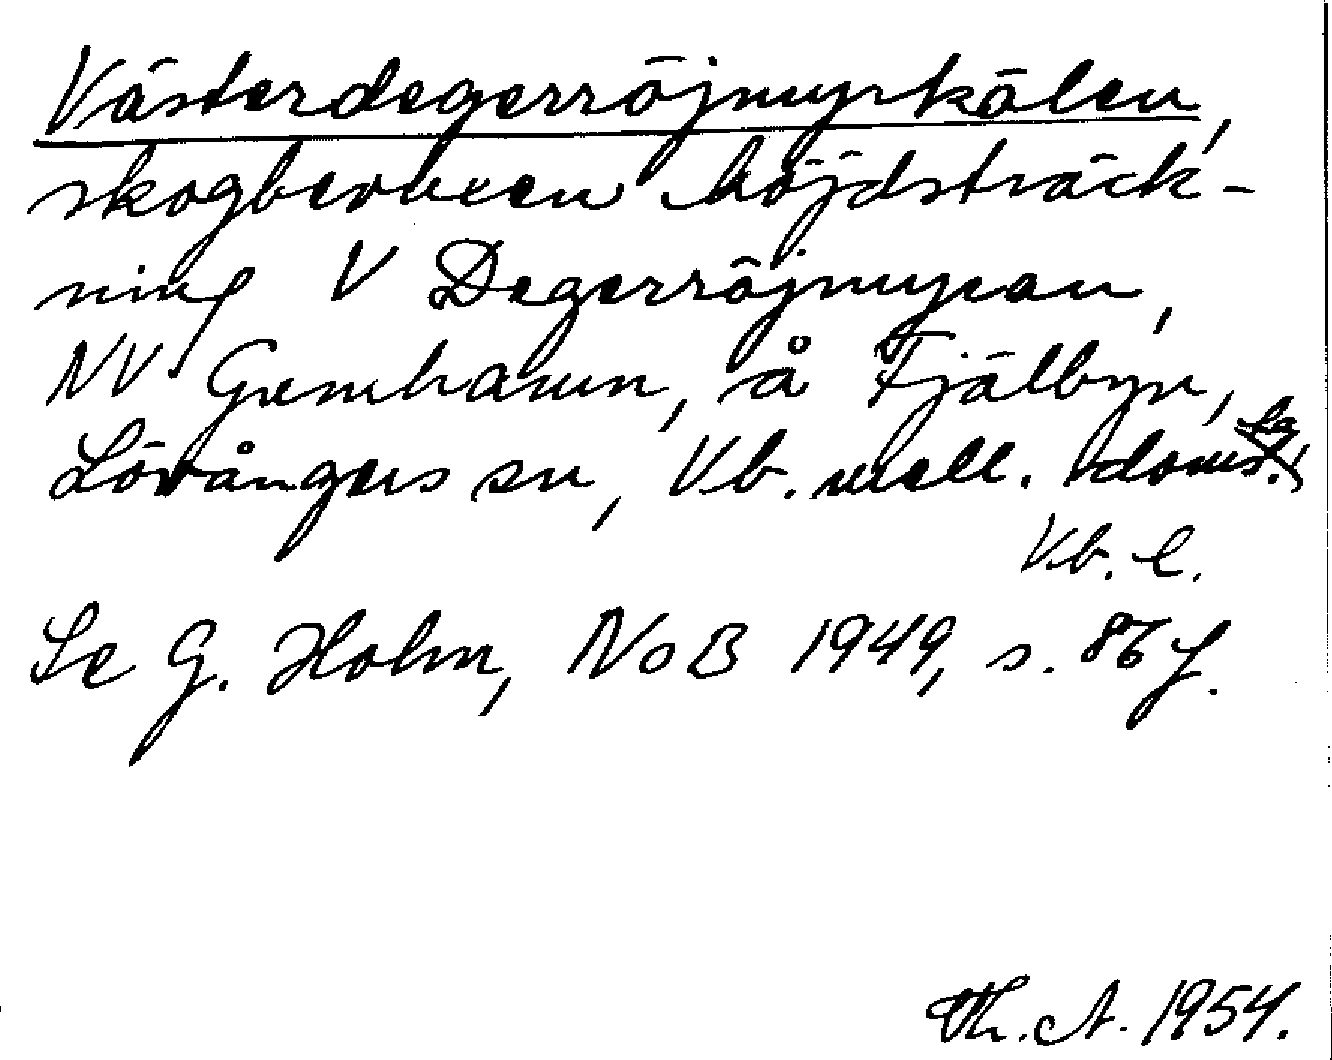 Västerdegerröjmyrkölen,
skogbevuxen höjdsträck-
ning V Degerröjmyran,
NV Grenhamn, å Fjälbyn,
Lövångers sn, Vb. mell. doms.
Vb. l.
Se G. Holm, NoB 1949, s. 86 f.
Th. A. 1954.